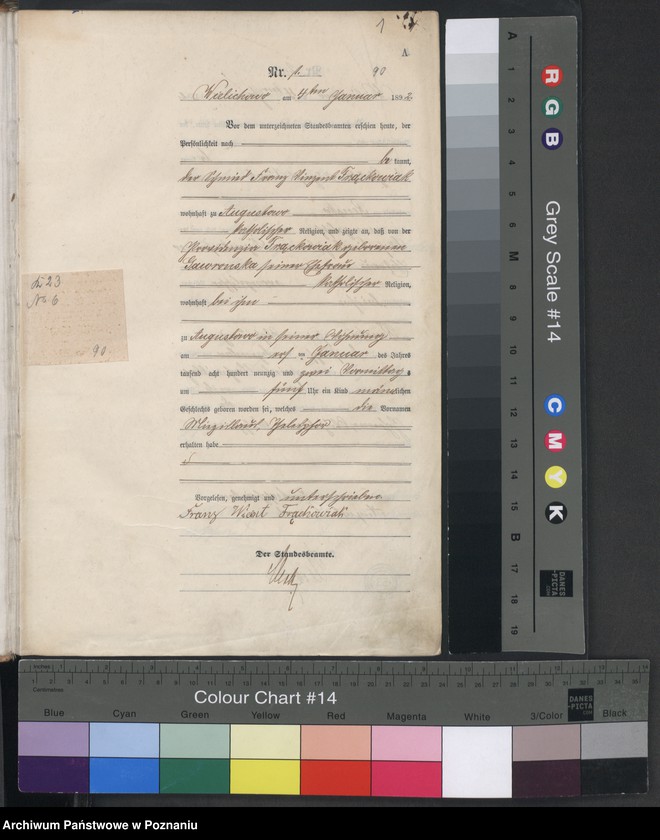 1
A
Nr. 1.
90
Wielichowo am 4ten Januar 1892
Vor dem unterzeichneten Standesbeamten erschien heute, der
Persönlichkeit nach
be kannt,
der Schmied Franz Vinzent Frąckowiak
wohnhaft zu Augustowo
katholischer Religion, und zeigte an, daß von der
Konstanzia Frąckowiak geborenen
Jaworonska seiner Ehefrau
katholischer Religion,
wohnhaft bei ihm
zu Augustowo in seiner Wohnung
am ersten Januar des Jahres
tausend acht hundert neunzig und zwei Vormittags
um fünf Uhr ein Kind männlichen
Geschlechts geboren worden sei, welches die Vornamen
Telesphor
erhalten habe
Vorgelesen, genehmigt und unterschrieben
Franz Frąckowiak
Der Standesbeamte.
23
No 6
90.
A
1
2
3
4
5
6
M
8
9
10
11
12
13
14
15
B
17
18
19
R
G
B
Grey Scale #14
C
M
Y
K
DANES
-PICTA
.COM
inches
Centimetres
Colour Chart #14
DANES
-PICTA
.COM
Blue Cyan Green Yellow Red Magenta White 3/Color Black
Archiwum Państwowe w Poznaniu